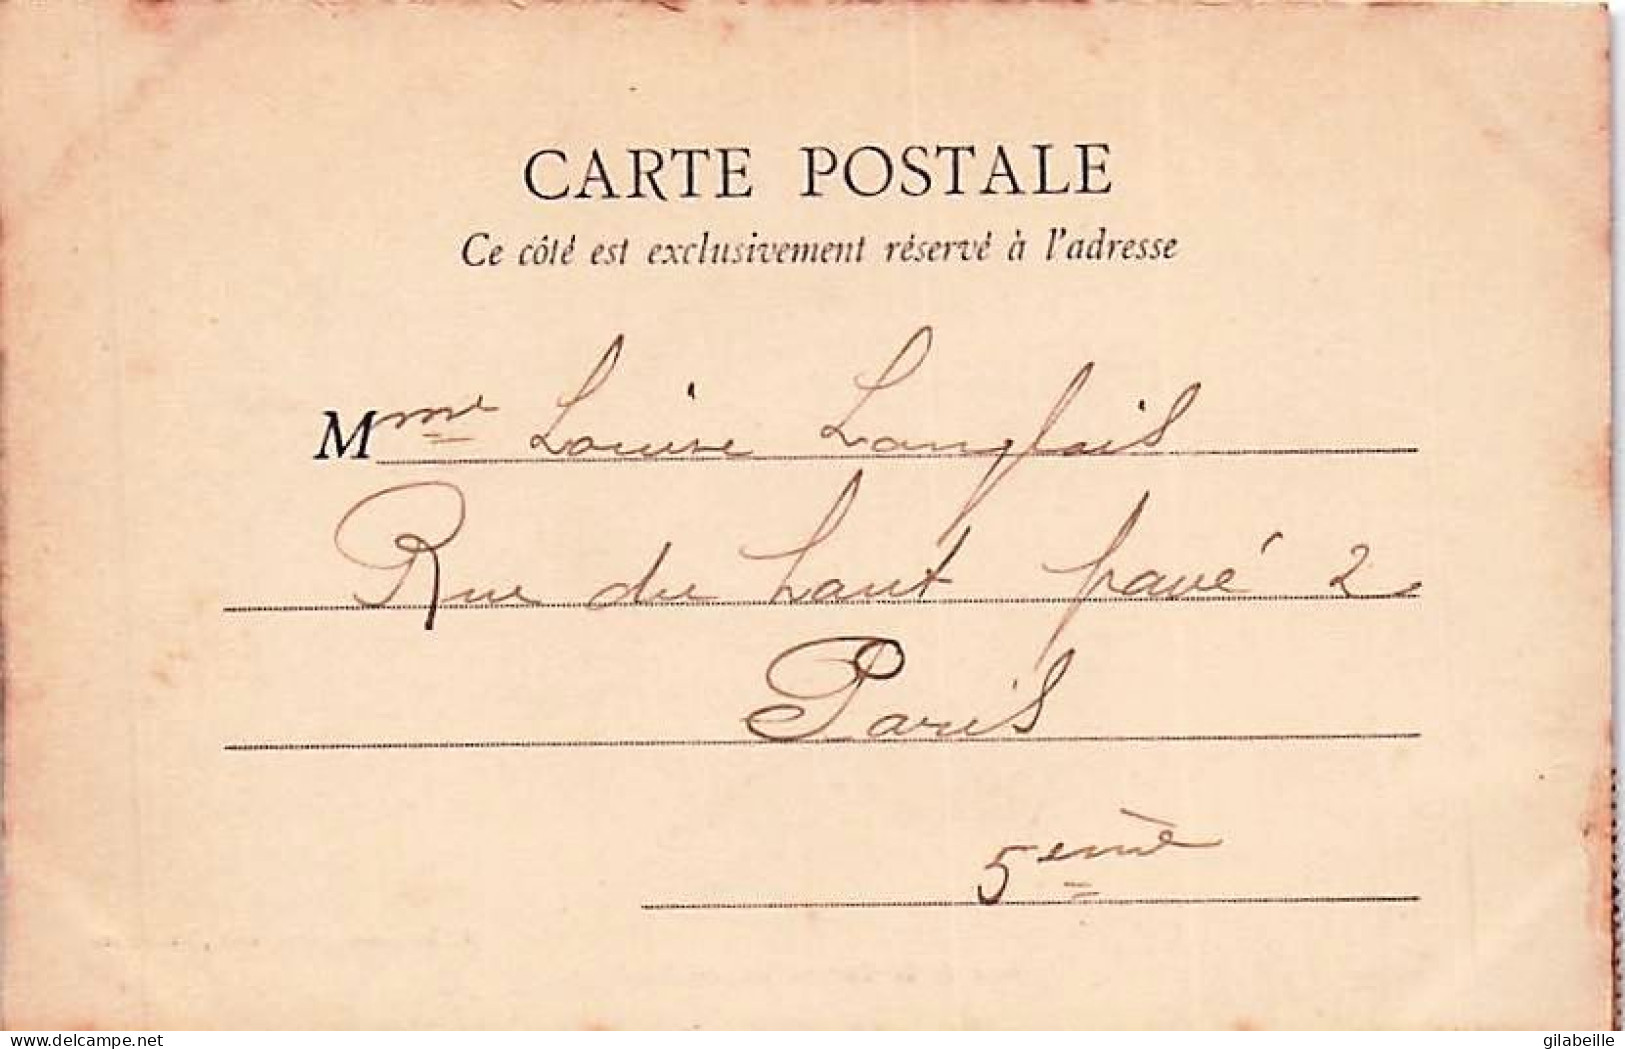 CARTE POSTALE
Ce côté est exclusivement réservé à l'adresse
Mme Louise Langlais
Rue du haut pavé 2
Paris
5ème
www.delcampe.net
gilabeille